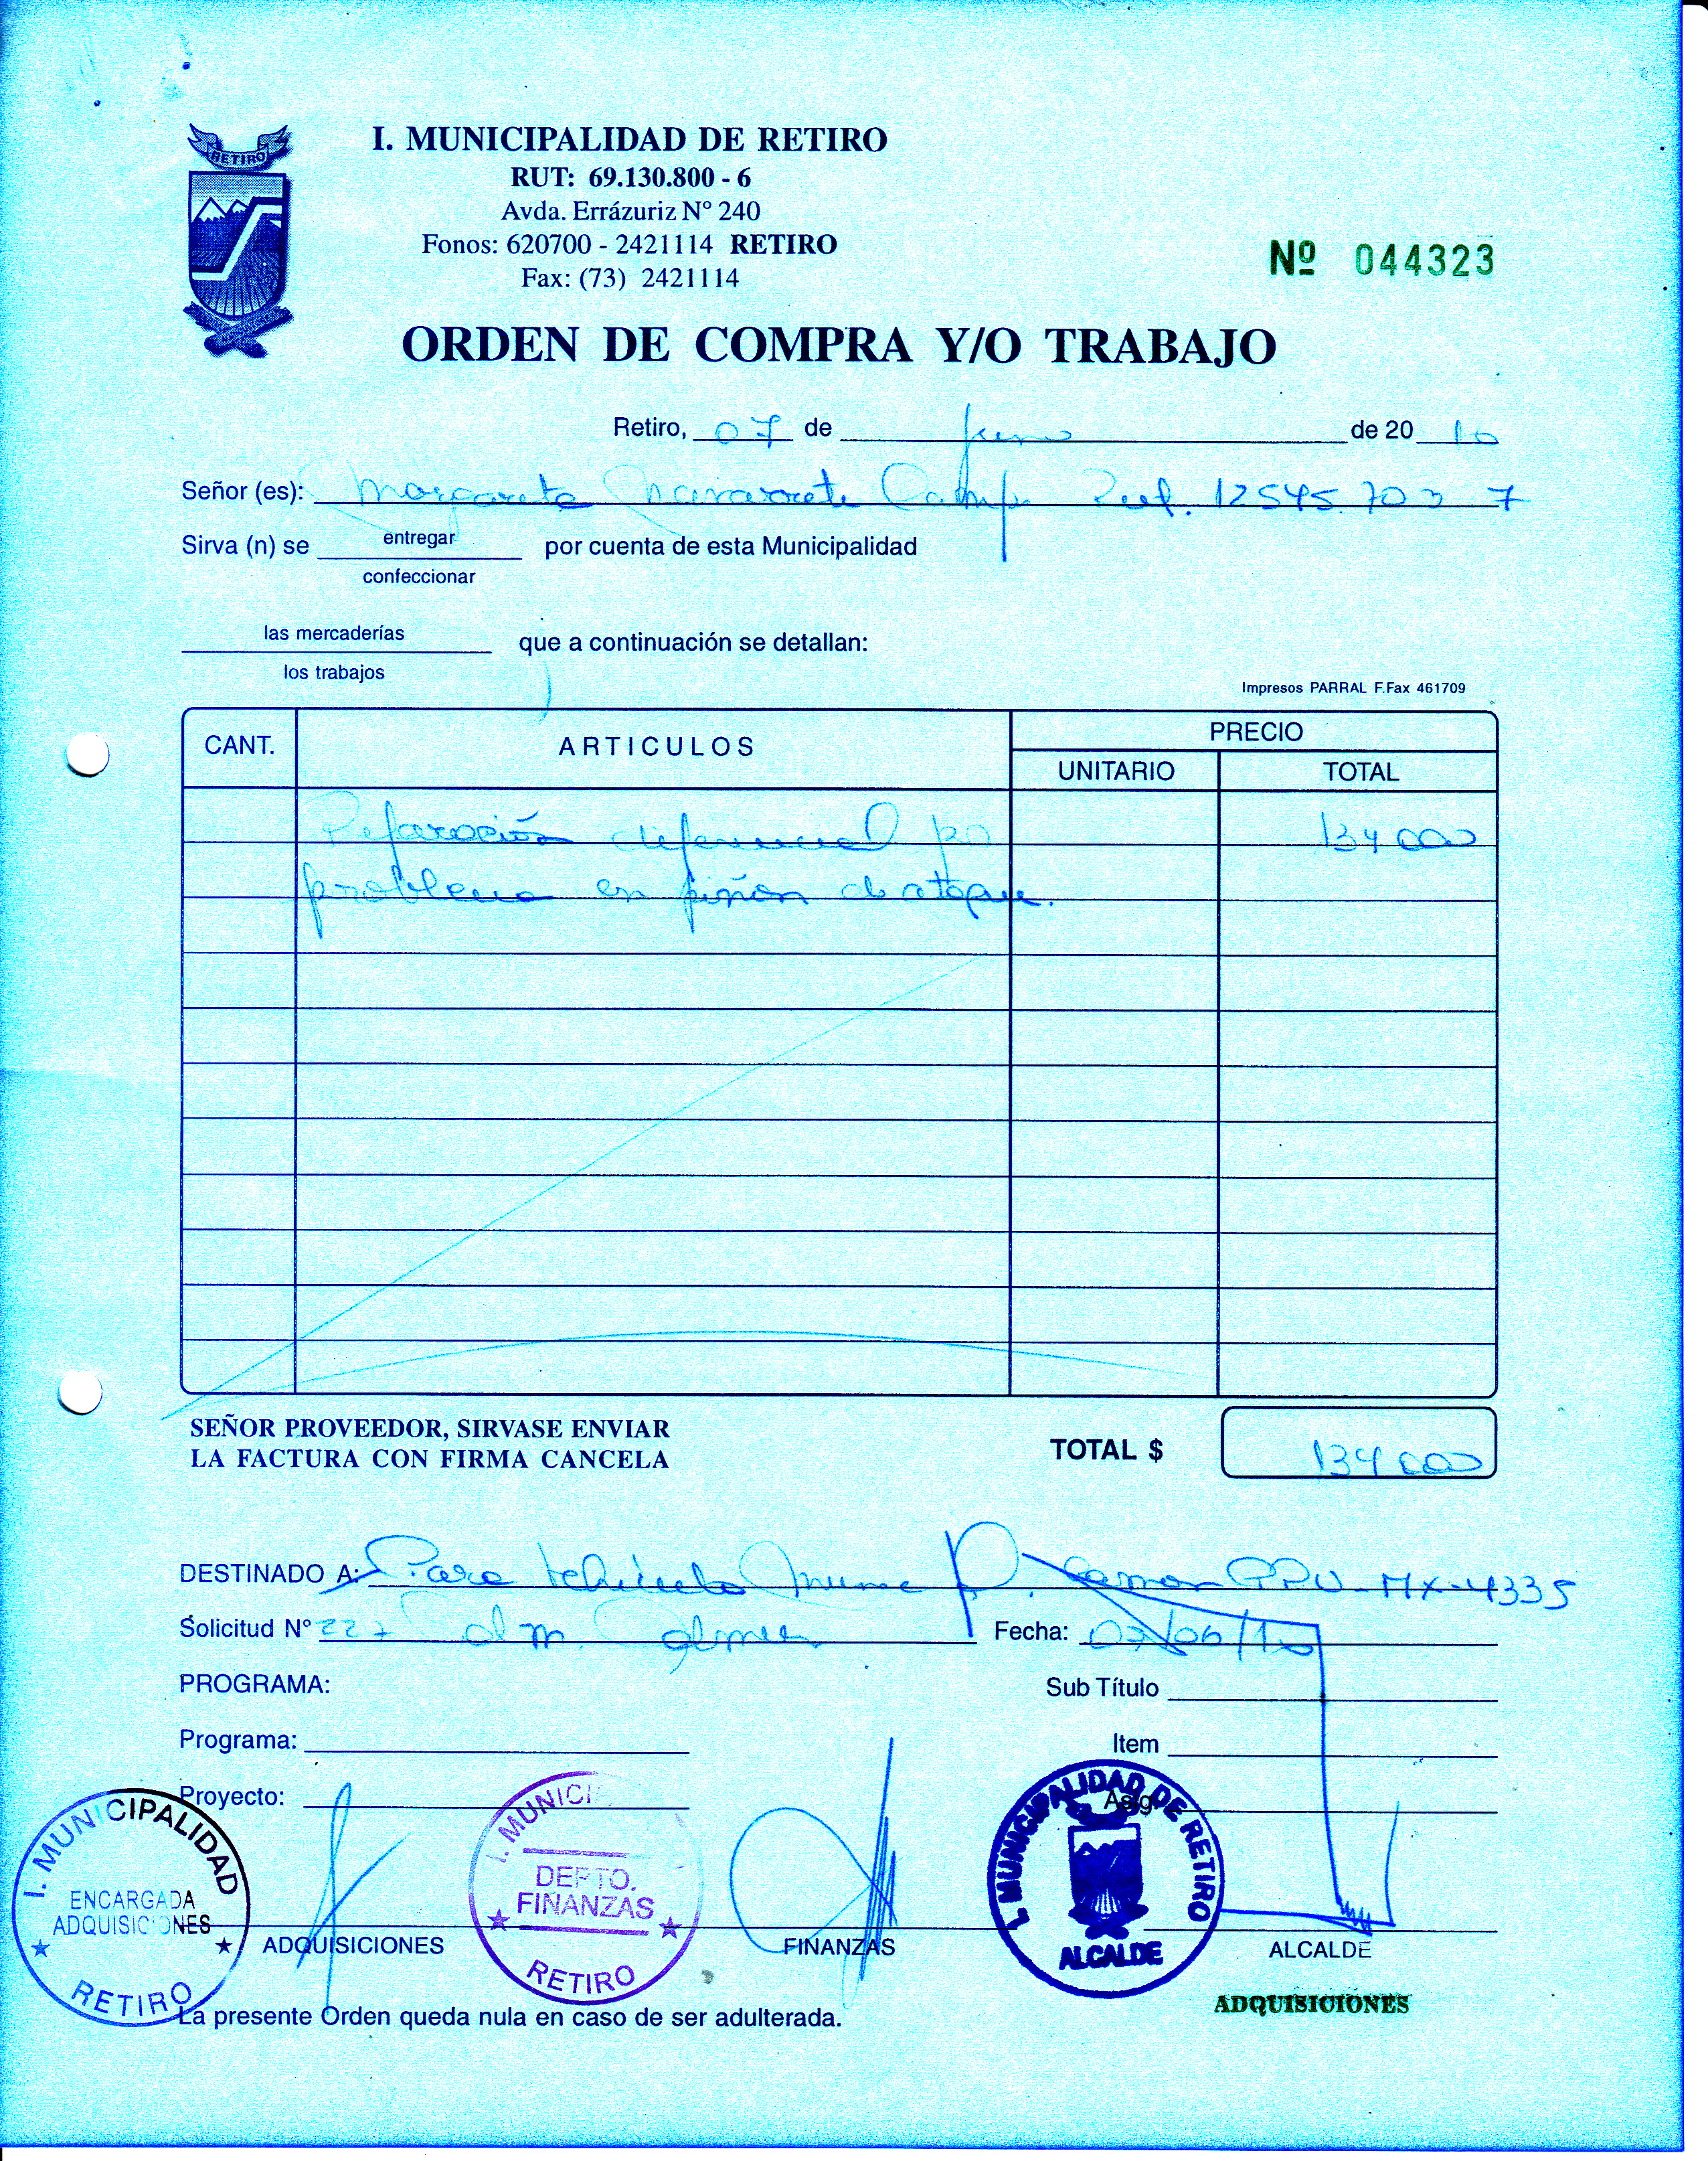 RETIRO
I. MUNICIPALIDAD DE RETIRO
RUT: 69.130.800 - 6
Avda. Errázuriz N° 240
Fonos: 620700 - 2421114 RETIRO
Fax: (73) 2421114
Nº 044323
ORDEN DE COMPRA Y/O TRABAJO
Retiro, 07 de Junio de 2010
Señor (es): Margarita Navarrete Rut. 12545.703 7
Sirva (n) se entregar por cuenta de esta Municipalidad
confeccionar
las mercaderías que a continuación se detallan:
los trabajos
Impresos PARRAL F.Fax 461709
CANT. ARTICULOS PRECIO
UNITARIO TOTAL
Reparación diferencial por 134 000
problema en piñon de ataque.
SEÑOR PROVEEDOR, SIRVASE ENVIAR
LA FACTURA CON FIRMA CANCELA
TOTAL $ 134 000
DESTINADO A: Para vehiculo PPU-MX-4335
Solicitud N° 227 Fecha: 07/06/10
PROGRAMA: Sub Título
Programa: Item
Proyecto: Asig.
I. MUNICIPALIDAD
ENCARGADA
ADQUISICIONES
RETIRO
ADQUISICIONES
I. MUNICI
DEPTO.
FINANZAS
RETIRO
FINANZAS
I. MUNICIPALIDAD DE RETIRO
ALCALDE
ALCALDE
ADQUISICIONES
La presente Orden queda nula en caso de ser adulterada.